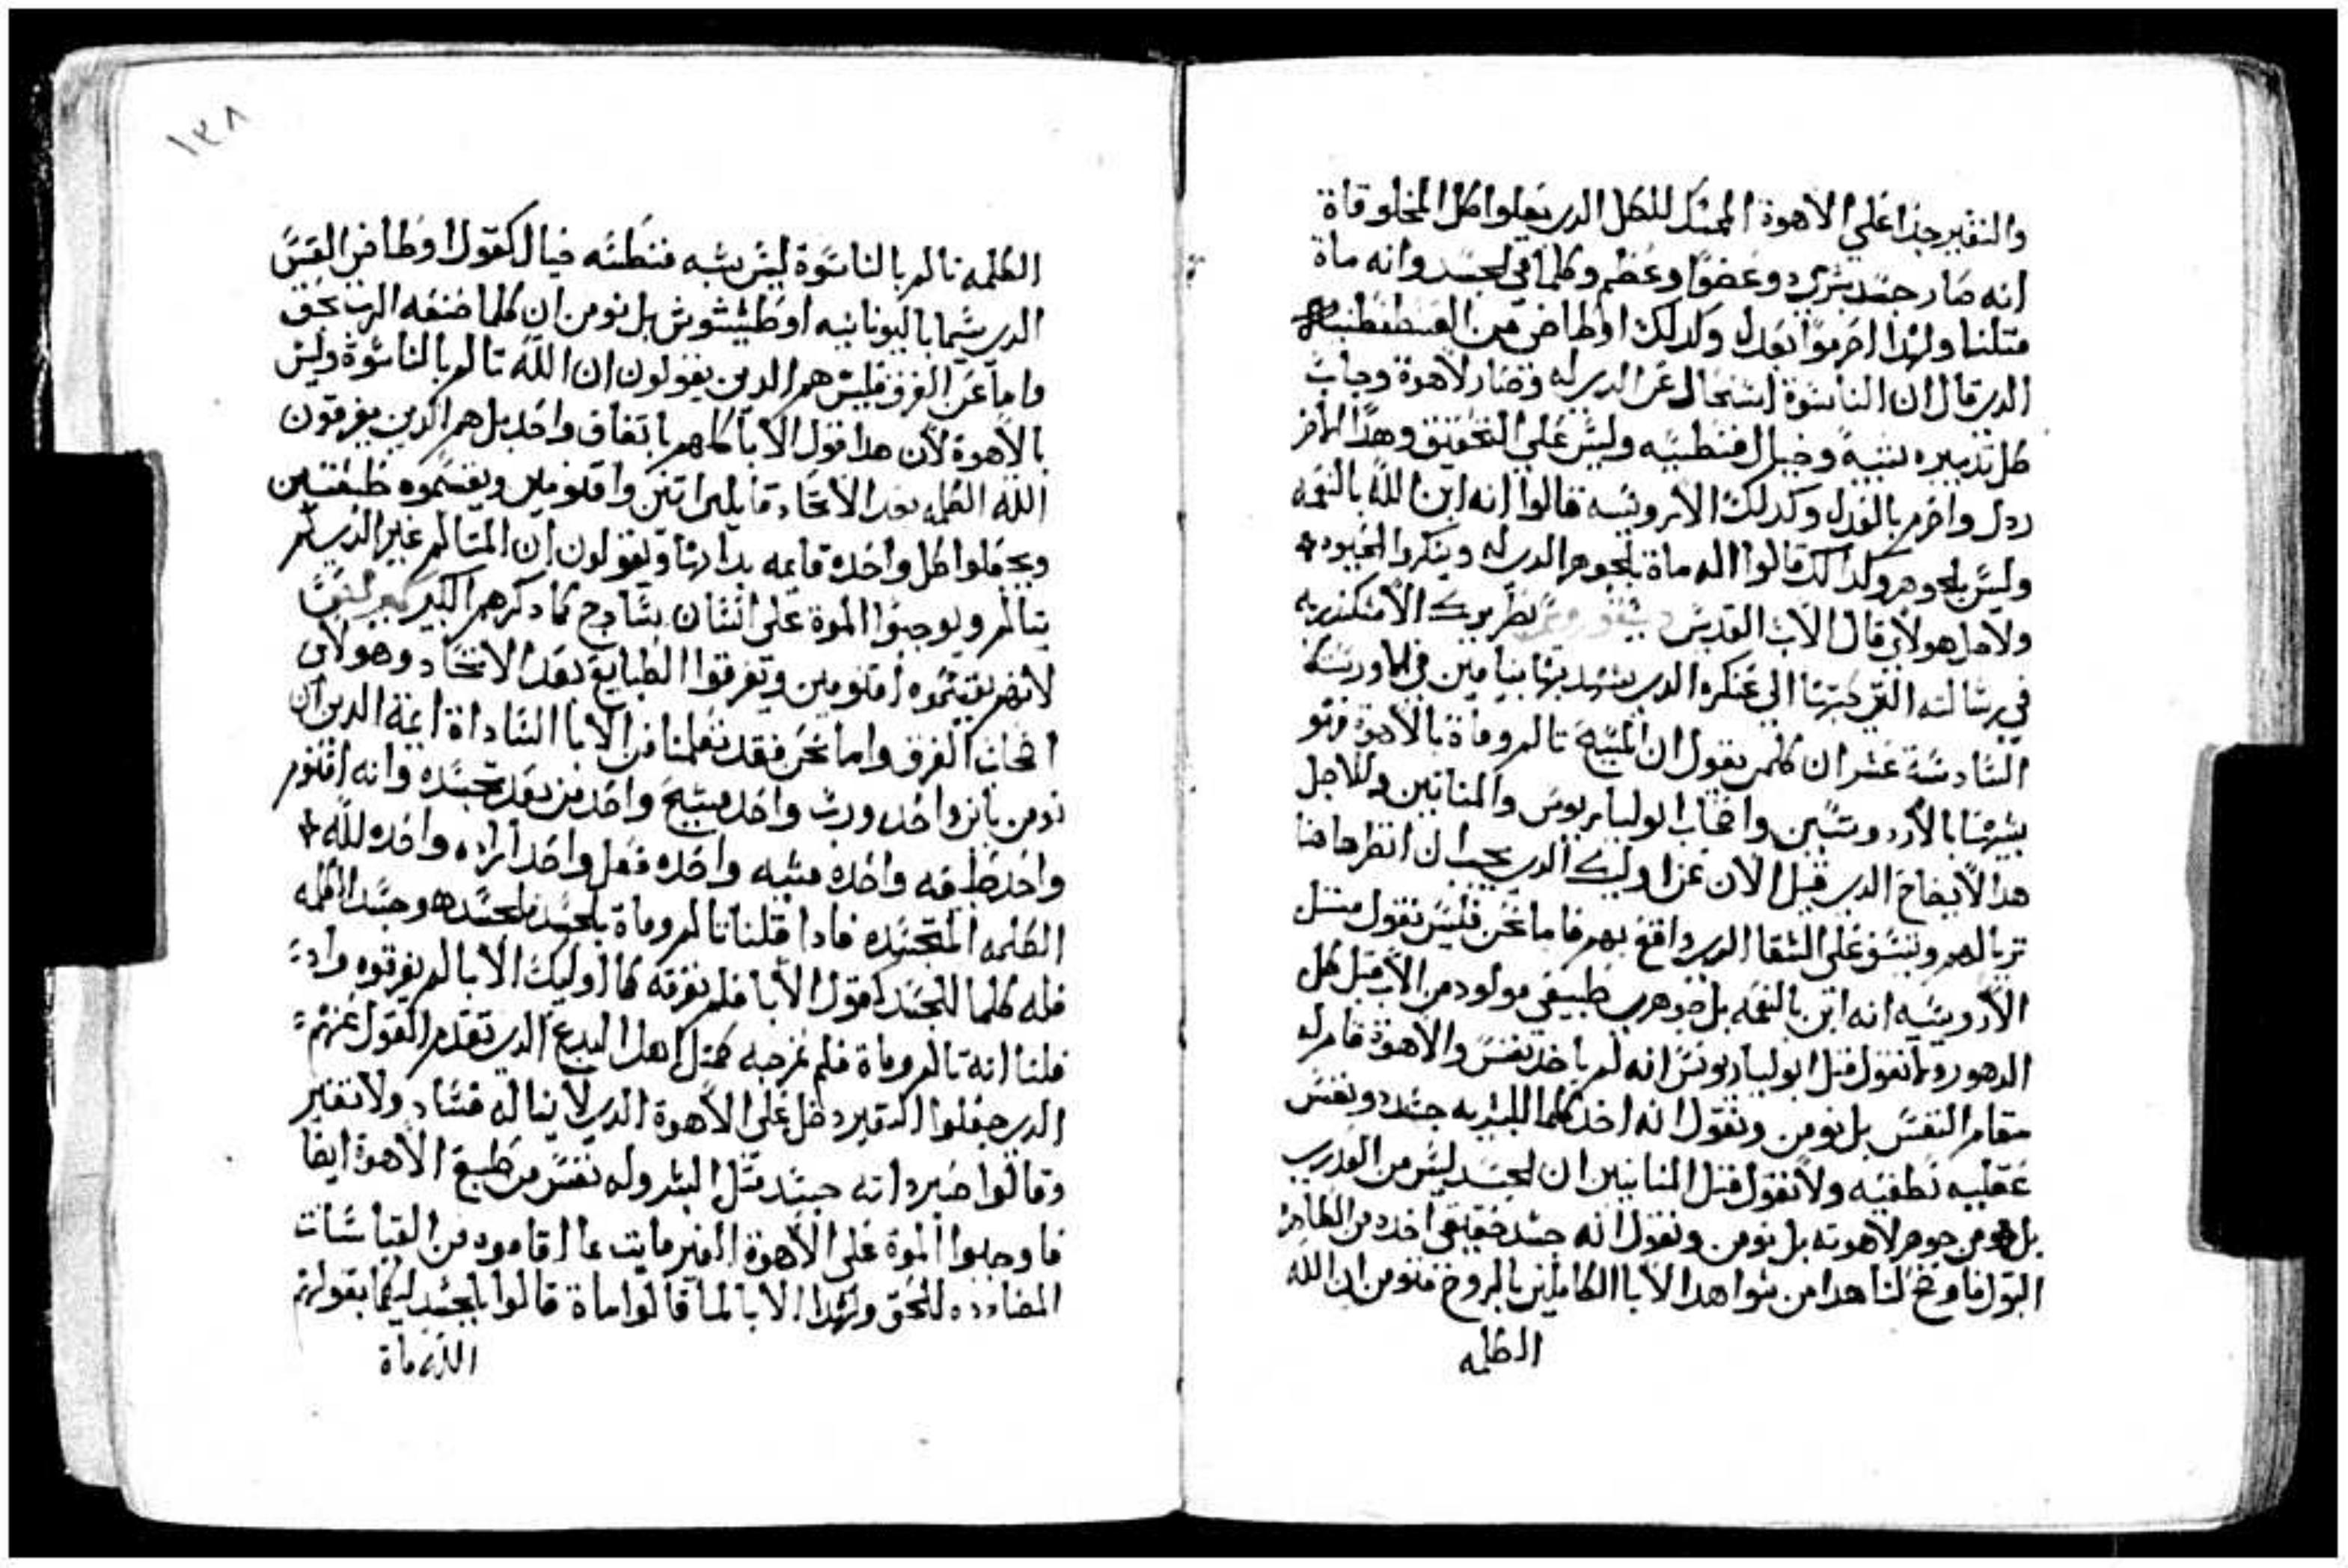 والتغيير جدا علي الاهوة الممسك للكل الدي يعلوا كل المخلوقاة
انه صار جسد بشري وعضو وعظم وكلما في الجسد وانه ماة
متلنا ولهدا احرموا بعدل وكدلك اوطاخي قس القسطنطنيه
الدي قال ان الناسوة استحال عن الدي له وصار لاهوة وجاب
كل تدبيره شبيه وخيال فنطسيه وليس علي التحقيق وهدا الاخر
ردل واحرم بالعدل وكدلك الاريوسيه قالوا انه ابن الله بالنعمه
وليس بالجوهر وكدالك قالوا اله ماة بالجوهر الدي له وينكروا
ولاجل هولاي قال الاب القديس بطريرك الاسكندريه
في رسالته التي كتبها الي عسكره الدي يشهد بها بنيامين في
السادسة عشر ان كلمن يقول ان المسيح تالم وماة بالاهوة فهو
يشبهها بالاريوسيين واصحاب ابوليناريوس والمنانيين ولاجل
هدا الايضاح الدي قيل الان عن اوليك الدي يجب ان انظر هاهنا
علي الشقا الدي واقع بهم فاما نحن فليس نقول متل
الاريوسيه انه ابن بالنعمه بل جوهري طبيعي مولود من الاب قبل كل
الدهور ولا نقول متل ابوليناريوس انه لم ياخد نفس والاهوة قام له
مقام النفس بل نومن ونقول انه اخد كلما للبشريه جسد ونفس
عقليه نطقيه ولا نقول متل المنانيين ان الجسد ليس من العدري
بل هو من جوهر لاهوته بل نومن ونقول انه جسد حقيقي اخده من الطاهرة
البتول فاوضح لنا هدا من شواهد الابا الكاملين بالروح فنومن ان الله
الكلمه
١٣٨
الكلمه تالم بالناسوة ليس بشبه فنطسه خيال كقول اوطاخي القس
الدي يسما باليونانيه اوطيشيوش بل نومن ان كلما صنعه الرب بحق
واما عن الفرق فليس هم الدين يقولون ان الله تالم بالناسوة وليس
بالاهوة لان هدا قول الابا كلهم باتفاق واحد بل هم الدين يفرقون
الله الكلمه بعد الاتحاد قايلين اتنين واقنومين ويقسموه طبعتين
ويجعلوا كل واحده قايمه بداتها ويقولون ان المتالم غير الدي لم
يتالم ويوجبوا الموة علي انسان سادج كما دكرهم الكبير
لانهم يقسموه اقنومين ويفرقوا الطبايع بعد الاتحاد وهولاي
اصحاب الفرق واما نحن فقد تعلمنا من الابا الساداة ايمة الدين ان
نومن بابن واحد ورب واحد مسيح واحد من بعد تجسده وانه اقنوم
واحد طبيعه واحده مشيه واحده فعل واحد اراده واحده لله
الكلمه المتجسده فادا قلنا تالم وماة بالجسد فالجسد هو جسد الكلمه
فله كلما للجسد كقول الابا فلم نفرقه كما اوليك الابا لم يفرقوه وادا
قلنا انه تالم وماة فلم نمزجه كمتل اهل البدع الدي تقدم القول عنهم
الدي جعلوا التغيير دخل علي الاهوة الدي لا يناله فساد ولا تغير
وقالوا صيرداته جسد متل البشر وله نفس من طبع الاهوة ايضا
فاوجبوا الموة علي الاهوة الغير مايت عا اقاموه من القياسات
المضادده للحق ولهدا الابا لما قالوا ماة قالوا بالجسد ليكما بقولهم
الدي ماة